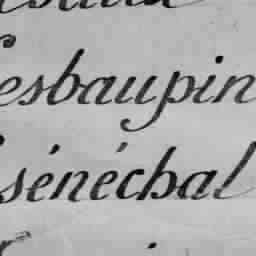 esbaupin
sénéchal